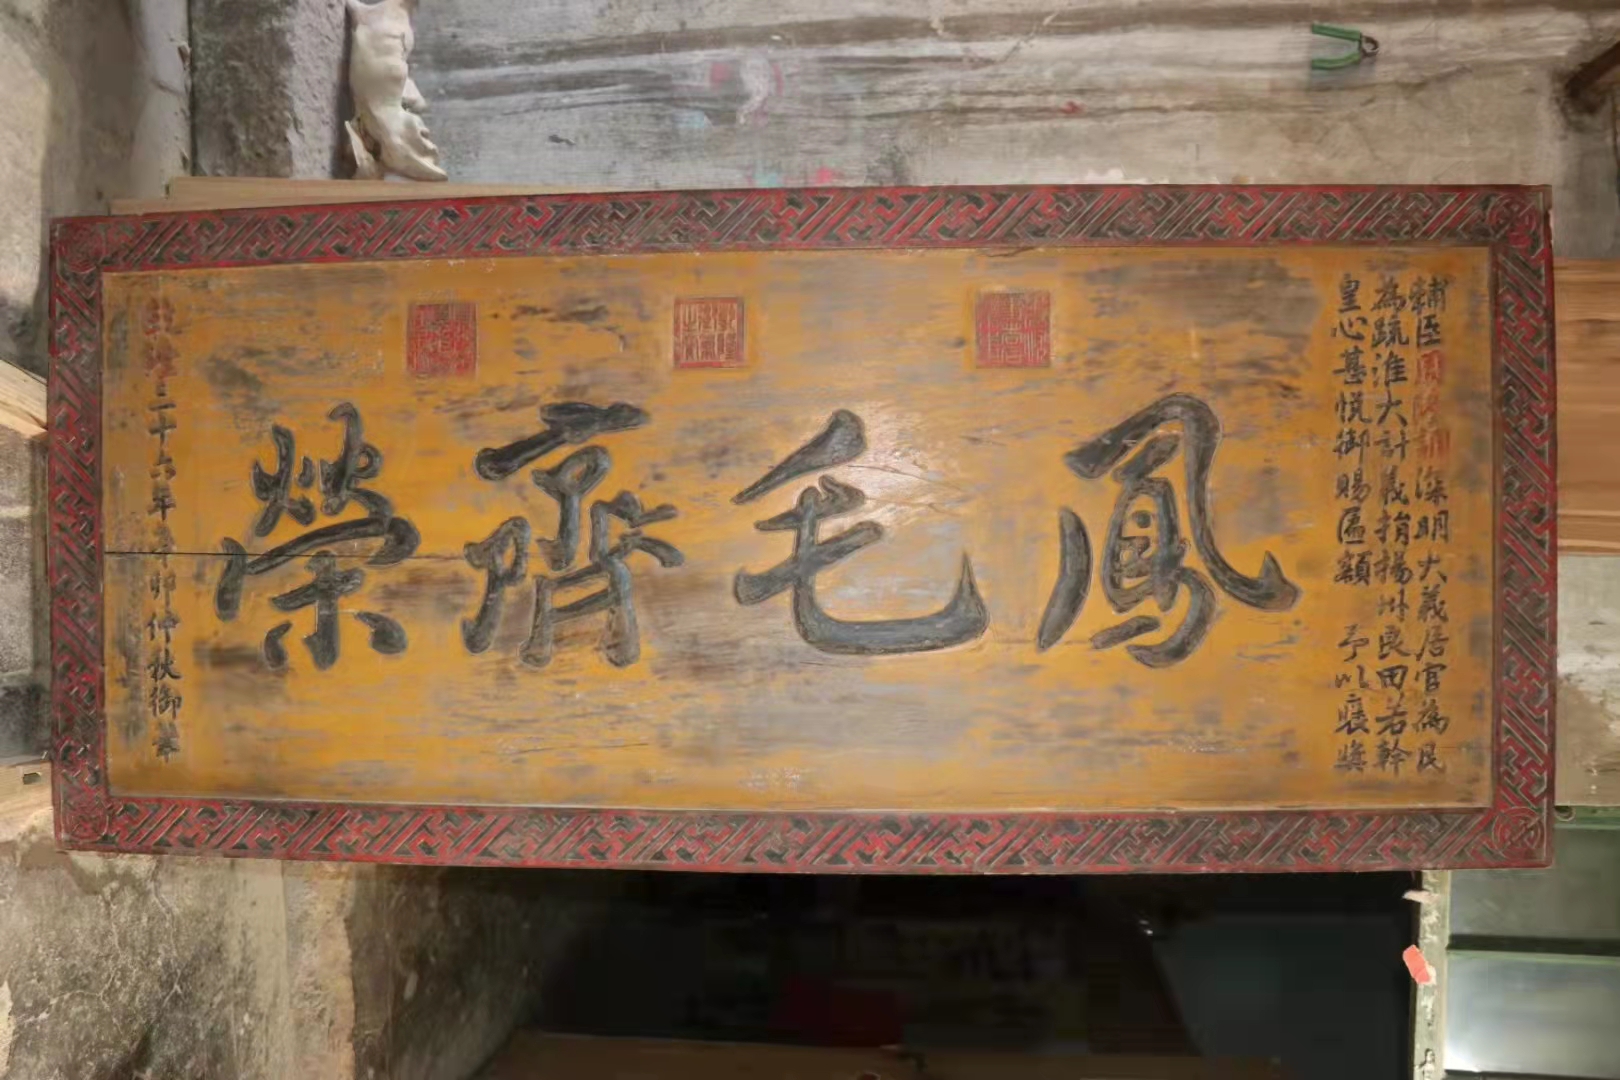 輔臣周際訓深明大義居官為民
為疏淮大計義捐揚州良田若幹
皇心甚悅御賜匾額 予以褒獎
鳳毛齊榮
乾隆三十六年辛卯仲秋御筆